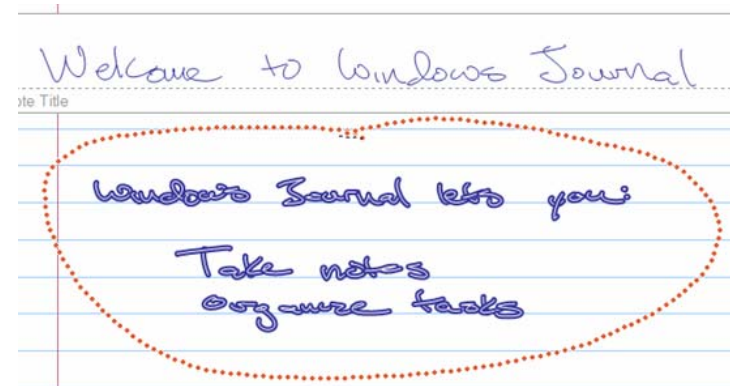 Welcome to Windows Journal
ote Title
Windows Journal lets you:
Take notes
organize tasks